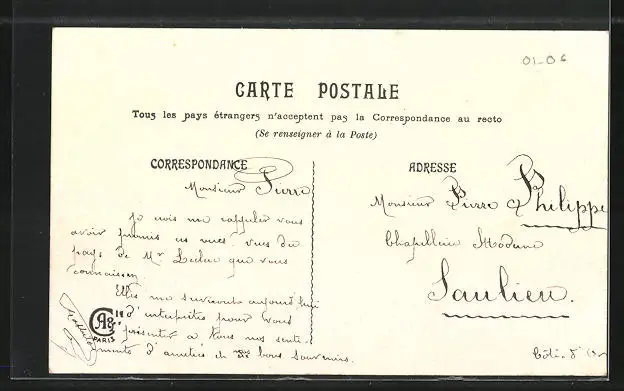 01-06
CARTE POSTALE
Tous les pays étrangers n'acceptent pas la Correspondance au recto
(Se renseigner à la Poste)
CORRESPONDANCE
Monsieur Pierre
Je vois me rappeler vous
avoir promis ces vues. vues du
pays de Mr Leduc que vous
connaissez
Elles me serviront aujourd'hui
d'interprètes pour vous
présenter à tous nos senti-
ments d'amitiés et nos bons souvenirs.
PARIS
ADRESSE
Monsieur Pierre Philippe
Chapellerie Moderne
Saulieu.
Côte d'Or